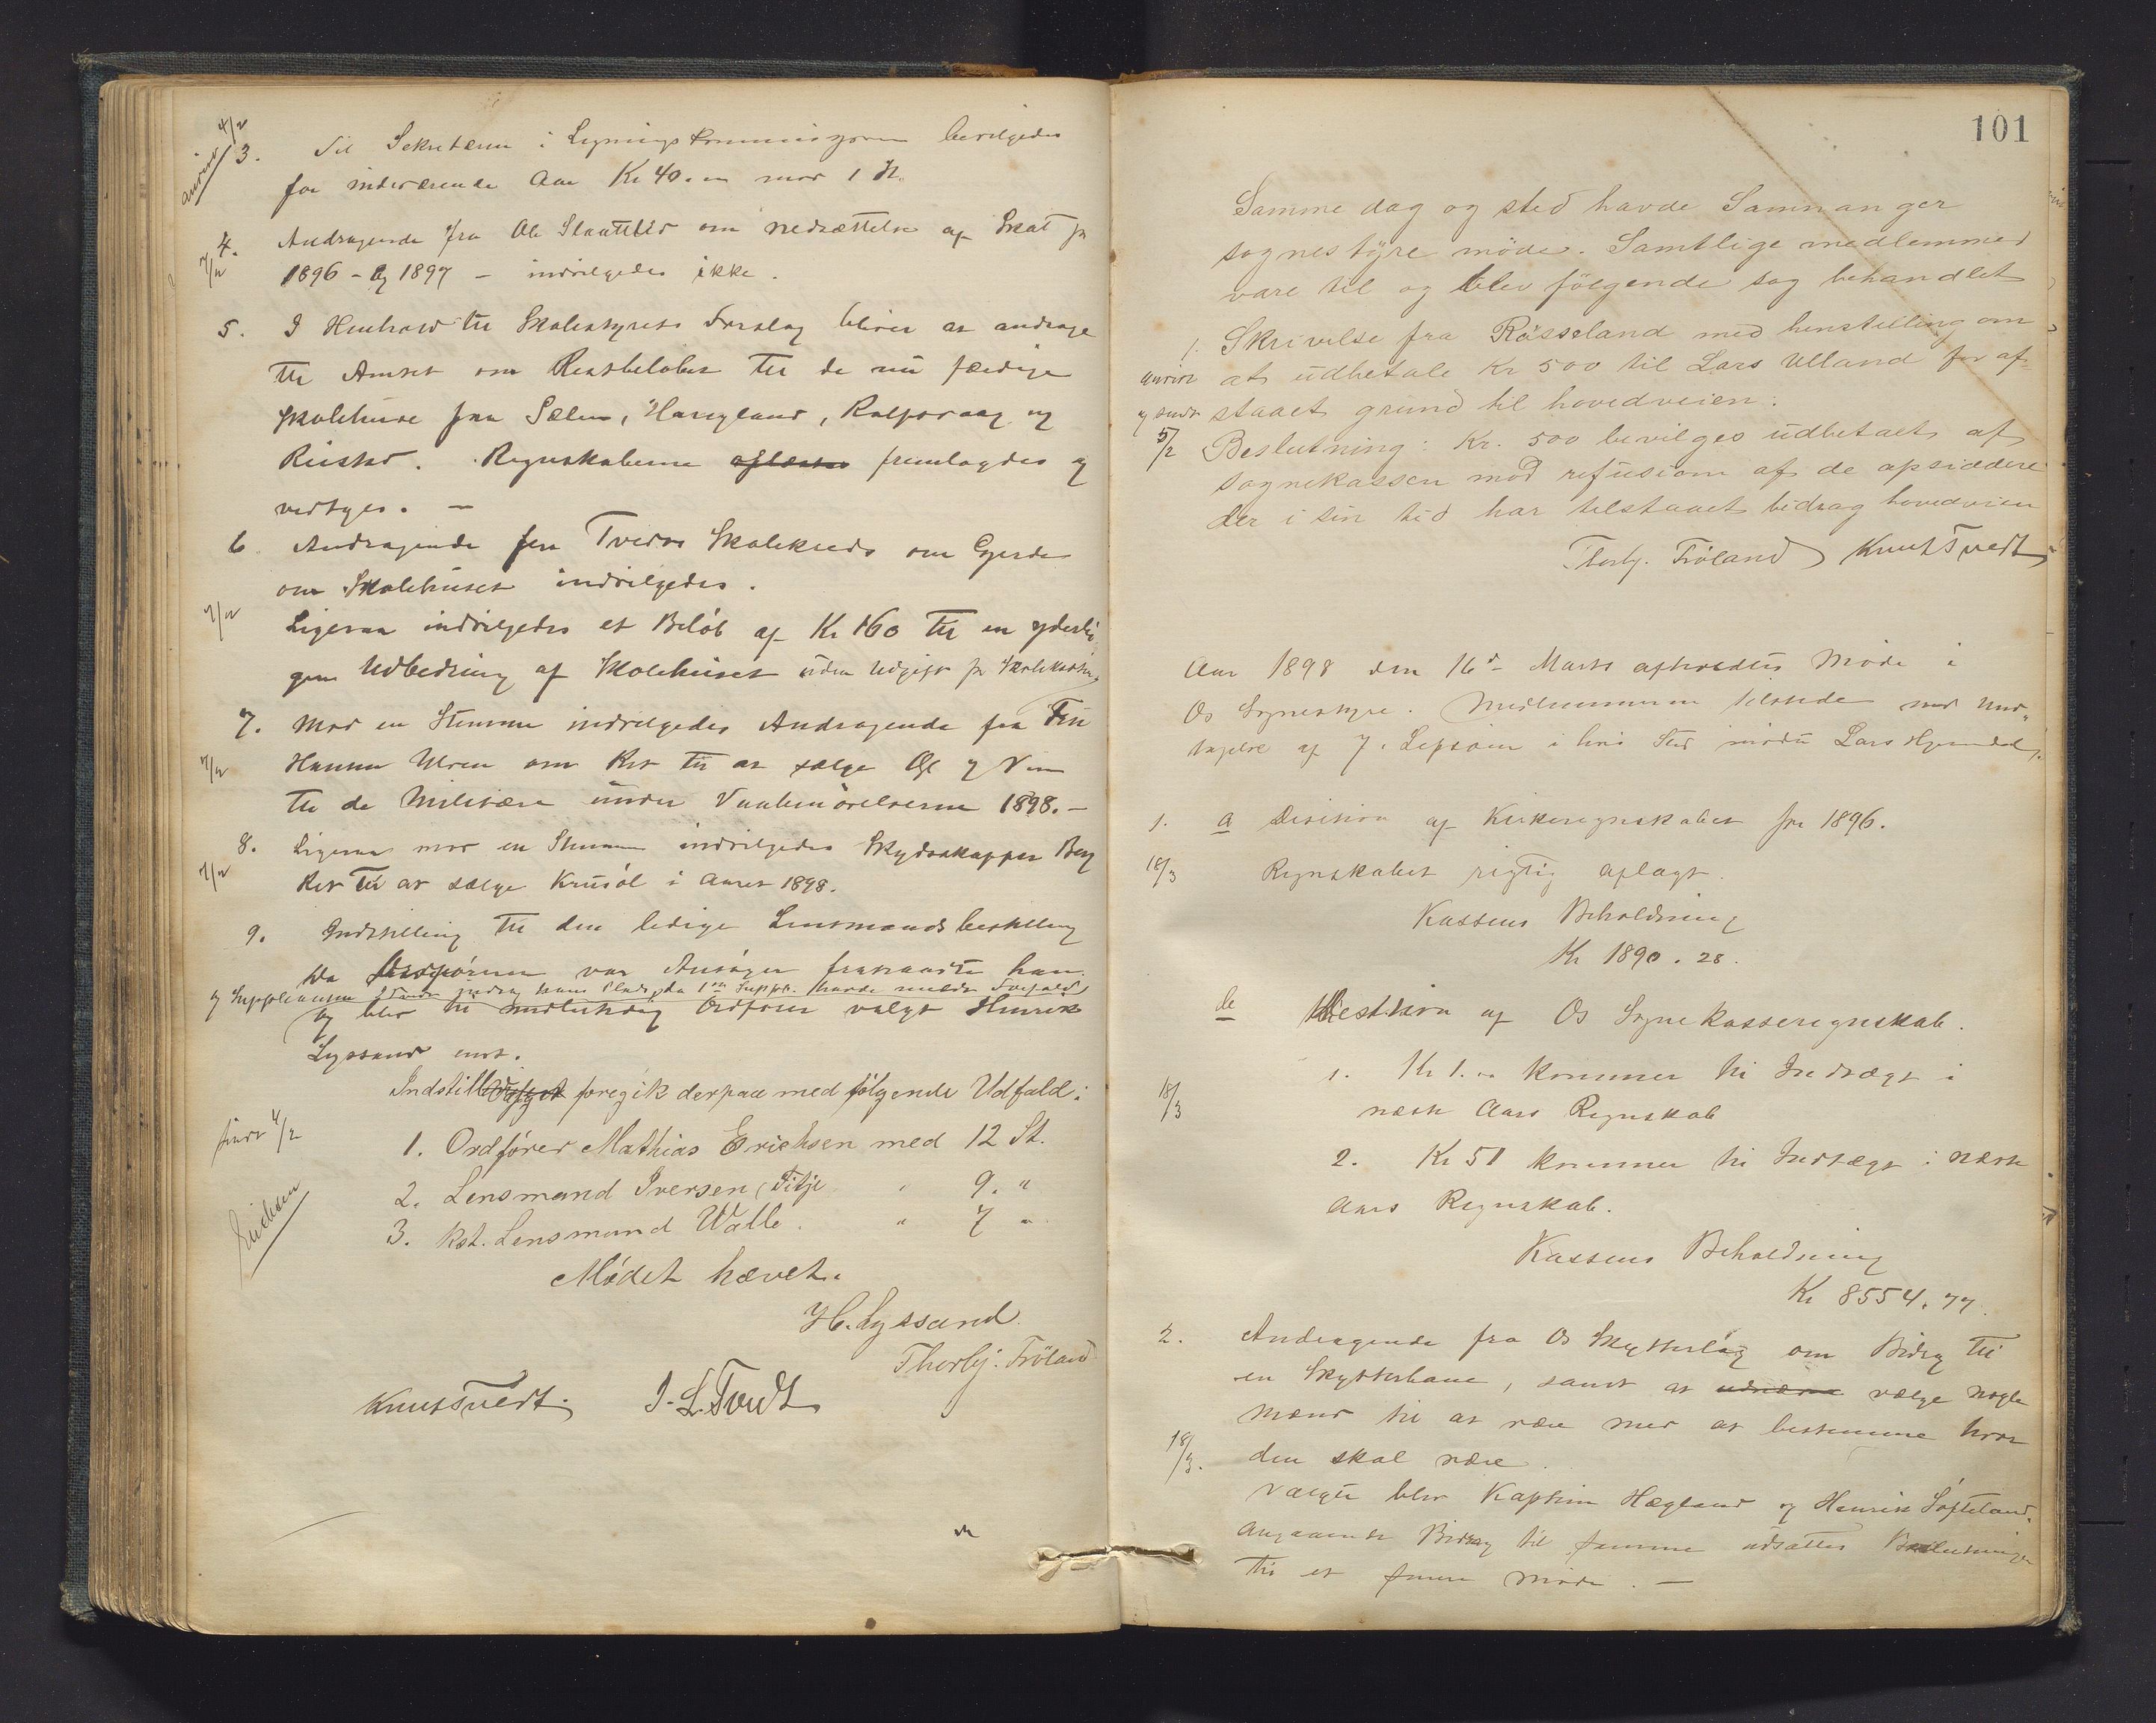 4/2
anvist
3. Til Sekretæren i Ligningskommisjonen bevilgedes
for indeværende Aar Kr 40.00 mod 1 St.
4. Andragende fra Ole Slaatlid om nedsættelse af Skat for
7/2
1896 - og 1897 - indvilgedes ikke.
5. I Henhold til Skolestyrets Forslag bliver at andrage
til Amtet om Restbeløbet til de nu færdige
Skolehuse paa Sælen, Haugland, og
. Regnskaberne oplæstes fremlagdes og
vedtoges. -
6. Andragende fra Skolekreds om Gjerde
om Skolehuset indvilgedes.
7/2
Ligesaa indvilgedes et Beløb af Kr 160 til en yderli-
gere Udbedring af Skolehuset uden Udgift for
7. Mod en Stemme indvilgedes Andragende fra Frk
7/2
Hanna Ulven om Ret til at sælge Øl og Vin
til de Militære under Vaabenøvelserne 1898. -
8. Ligesaa mod en Stemme indvilgedes Skydsskaffer Berg
7/2
Ret til at sælge Krusøl i Aaret 1898.
9. Indstilling til den ledige Lensmandsbestilling
Da Ordføreren var Ansøger fratraadte han
og Suppleanten indtog hans Plads, da 1ste Suppl. havde meldt Forfald
og blev til midlertidig Ordfører valgt Henrik
Lyssand enst.
Indstillingen foregik derpaa med følgende Udfald:
4/2
1. Ordfører Mathias Erichsen med 12 St.
2. Lensmand Iversen, Fitje " 9. "
3. Kst. Lensmand Walle. " 7 "
Erichsen
Mødet hævet.
H. Lyssand
Thorbj. Fröland
Knut Tvedt. J. L. Tvedt
101
Samme dag og sted havde Samnanger
sognestyre møde. Samtlige medlemmer
vare til og blev følgende sag behandlet
1. Skrivelse fra Røsseland med henstilling om
anvist
at udbetale Kr 500 til Lars Ulland for af-
og sendt
staaet grund til hovedveien.
5/2
Beslutning: Kr. 500 bevilges udbetalt af
sognekassen mod refusion af de opsiddere
der i sin tid har tilstaaet bidrag hovedveien
Thorbj. Fröland Knut Tvedt
Aar 1898 den 16de Marts afholdtes Møde i
Os Sognestyre. Medlemmerne tilstede med Und-
tagelse af J. Lepsøen i hvis Sted mødte Lars Hjemdal.
1. a Desision af Kirkeregnskabet for 1896.
18/3
Regnskabet rigtig aflagt.
Kassens Beholdning
Kr 1890.28.
de Desision af Os Sognekasseregnskab.
1. Kr 1.00 kommer til Indtægt i
18/3
næste Aars Regnskab
2. Kr 51 kommer til Indtægt i næste
Aars Regnskab.
Kassens Beholdning
Kr 8554.77.
2. Andragende fra Os Skytterlag om Bidrag til
en Skytterbane, samt at udnævne vælge nogle
Mænd til at være med at bestemme hvor
18/3.
den skal være.
Valgte blev Kaptein Hægland og Henrik Søfteland.
Angaaende Bidrag til samme udsættes Beslutningen
til et senere Møde. -